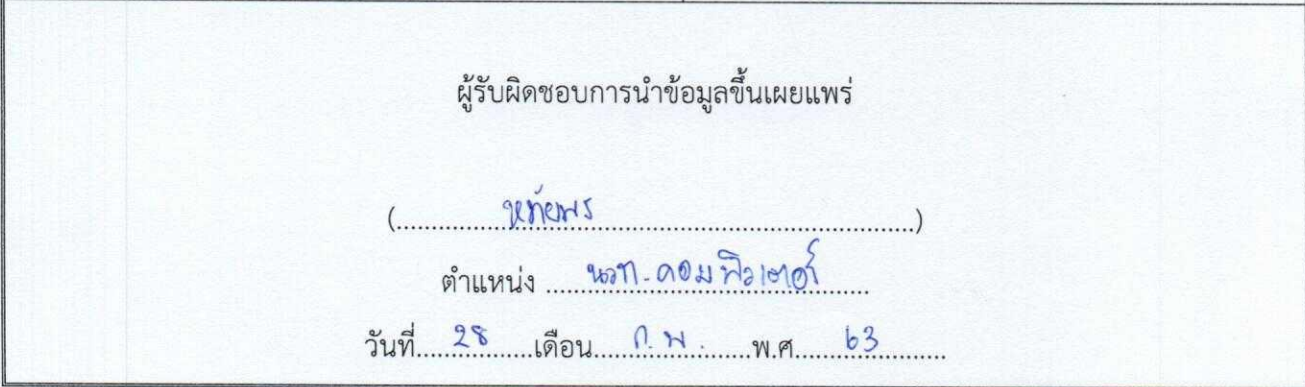 ผู้รับผิดชอบการนำข้อมูลขึ้นเผยแพร่
(.................หทัยพร.................)
ตำแหน่ง ......นวท.คอมพิวเตอร์......
วันที่.....28.....เดือน.....ก.พ......พ.ศ.....63.....